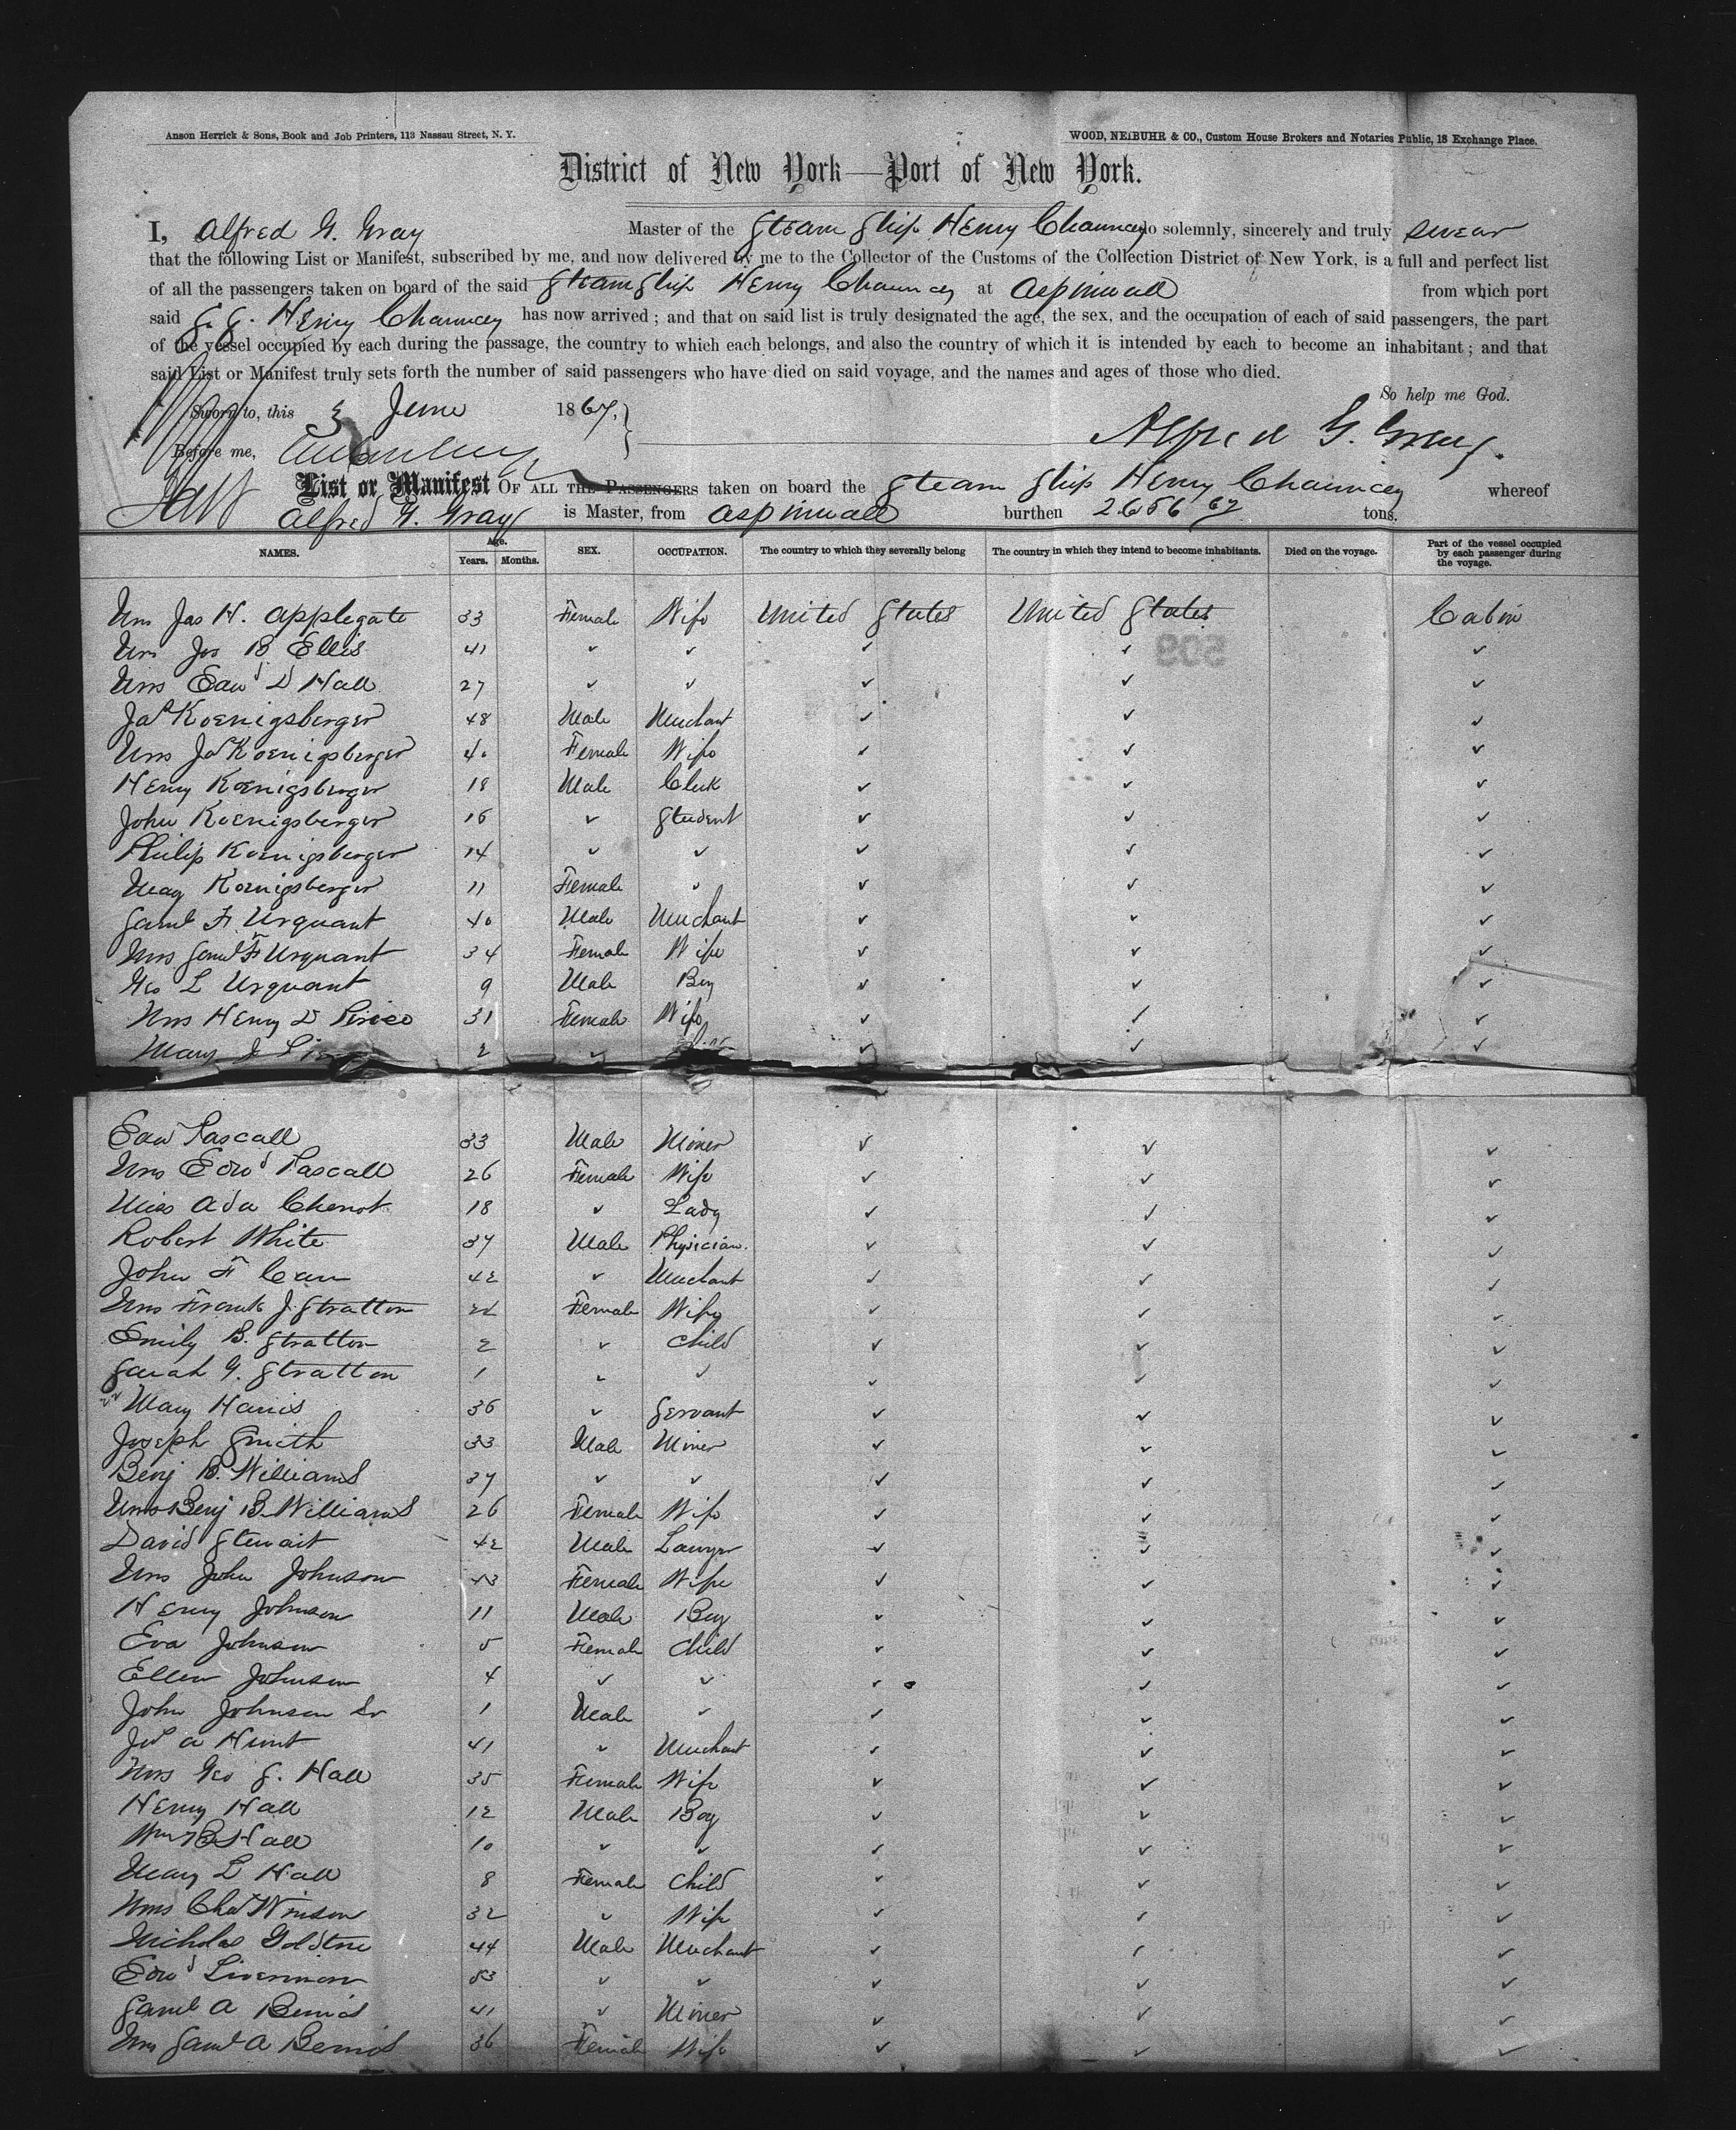 Anson Herrick & Sons, Book and Job Printers, 113 Nassau Street, N. Y.
WOOD, NEIBUHR & CO., Custom House Brokers and Notaries Public, 18 Exchange Place.
District of New York—Port of New York.
I, Alfred G. Gray Master of the Steam Ship Henry Chauncey do solemnly, sincerely and truly swear
that the following List or Manifest, subscribed by me, and now delivered by me to the Collector of the Customs of the Collection District of New York, is a full and perfect list
of all the passengers taken on board of the said Steam Ship Henry Chauncey at Aspinwall from which port
said S. S. Henry Chauncey has now arrived; and that on said list is truly designated the age, the sex, and the occupation of each of said passengers, the part
of the vessel occupied by each during the passage, the country to which each belongs, and also the country of which it is intended by each to become an inhabitant; and that
said List or Manifest truly sets forth the number of said passengers who have died on said voyage, and the names and ages of those who died.
So help me God.
Sworn to, this 3 June 1867,
Alfred G. Gray.
Before me,
List or Manifest OF ALL THE PASSENGERS taken on board the Steam Ship Henry Chauncey whereof
Alfred G. Gray is Master, from Aspinwall burthen 2656 67 tons.
NAMES. Age. Years. Months. SEX. OCCUPATION. The country to which they severally belong The country in which they intend to become inhabitants. Died on the voyage. Part of the vessel occupied by each passenger during the voyage.
Mrs Jas H. Applegate 33 Female Wife United States United States Cabin
Mrs Jos B Ellis 41 " " " " "
509
Mrs Edwd D Hall 27 " " " " "
Jas Koenigsberger 48 Male Merchant " " "
Mrs Jas Koenigsberger 40 Female Wife " " "
Henry Koenigsberger 18 Male Clerk " " "
John Koenigsberger 16 " Student " " "
Philip Koenigsberger 14 " " " " "
May Koenigsberger 11 Female " " " "
Saml F Urquant 40 Male Merchant " " "
Mrs Saml F Urquant 34 Female Wife " " "
Geo L Urquant 9 Male Boy " " "
Mrs Henry D Peirce 31 Female Wife " " "
Mary J 2 " " " "
Edwd Pascall 33 Male Miner " " "
Mrs Edwd Pascall 26 Female Wife " " "
Miss Ada Chenot 18 " Lady " " "
Robert White 37 Male Physician. " " "
John F Carr 42 " Merchant " " "
Mrs Frank J. Stratton 22 Female Wife " " "
Emily B. Stratton 2 " Child " " "
Sarah G. Stratton 1 " " " " "
Mary Harris 36 " Servant " " "
Joseph Smith 33 Male Miner " " "
Benj B. Williams 37 " " " " "
Mrs Benj B. Williams 26 Female Wife " " "
David Stewart 42 Male Lawyer " " "
Mrs John Johnson 43 Female Wife " " "
Henry Johnson 11 Male Boy " " "
Eva Johnson 5 Female Child " " "
Ellen Johnson 4 " " " " "
John Johnson Sr 1 Male " " " "
Jas A Hunt 41 " Merchant " " "
Mrs Geo S. Hall 35 Female Wife " " "
Henry Hall 12 Male Boy " " "
Wm B Hall 10 " " " " "
Mary L Hall 8 Female Child " " "
Mrs Chas Winson 32 " Wife " " "
Nicholas Goldstne 44 Male Merchant " " "
Edwd Livermore 53 " " " " "
Saml A Bemis 41 " Miner " " "
Mrs Saml A Bemis 36 Female Wife " " "